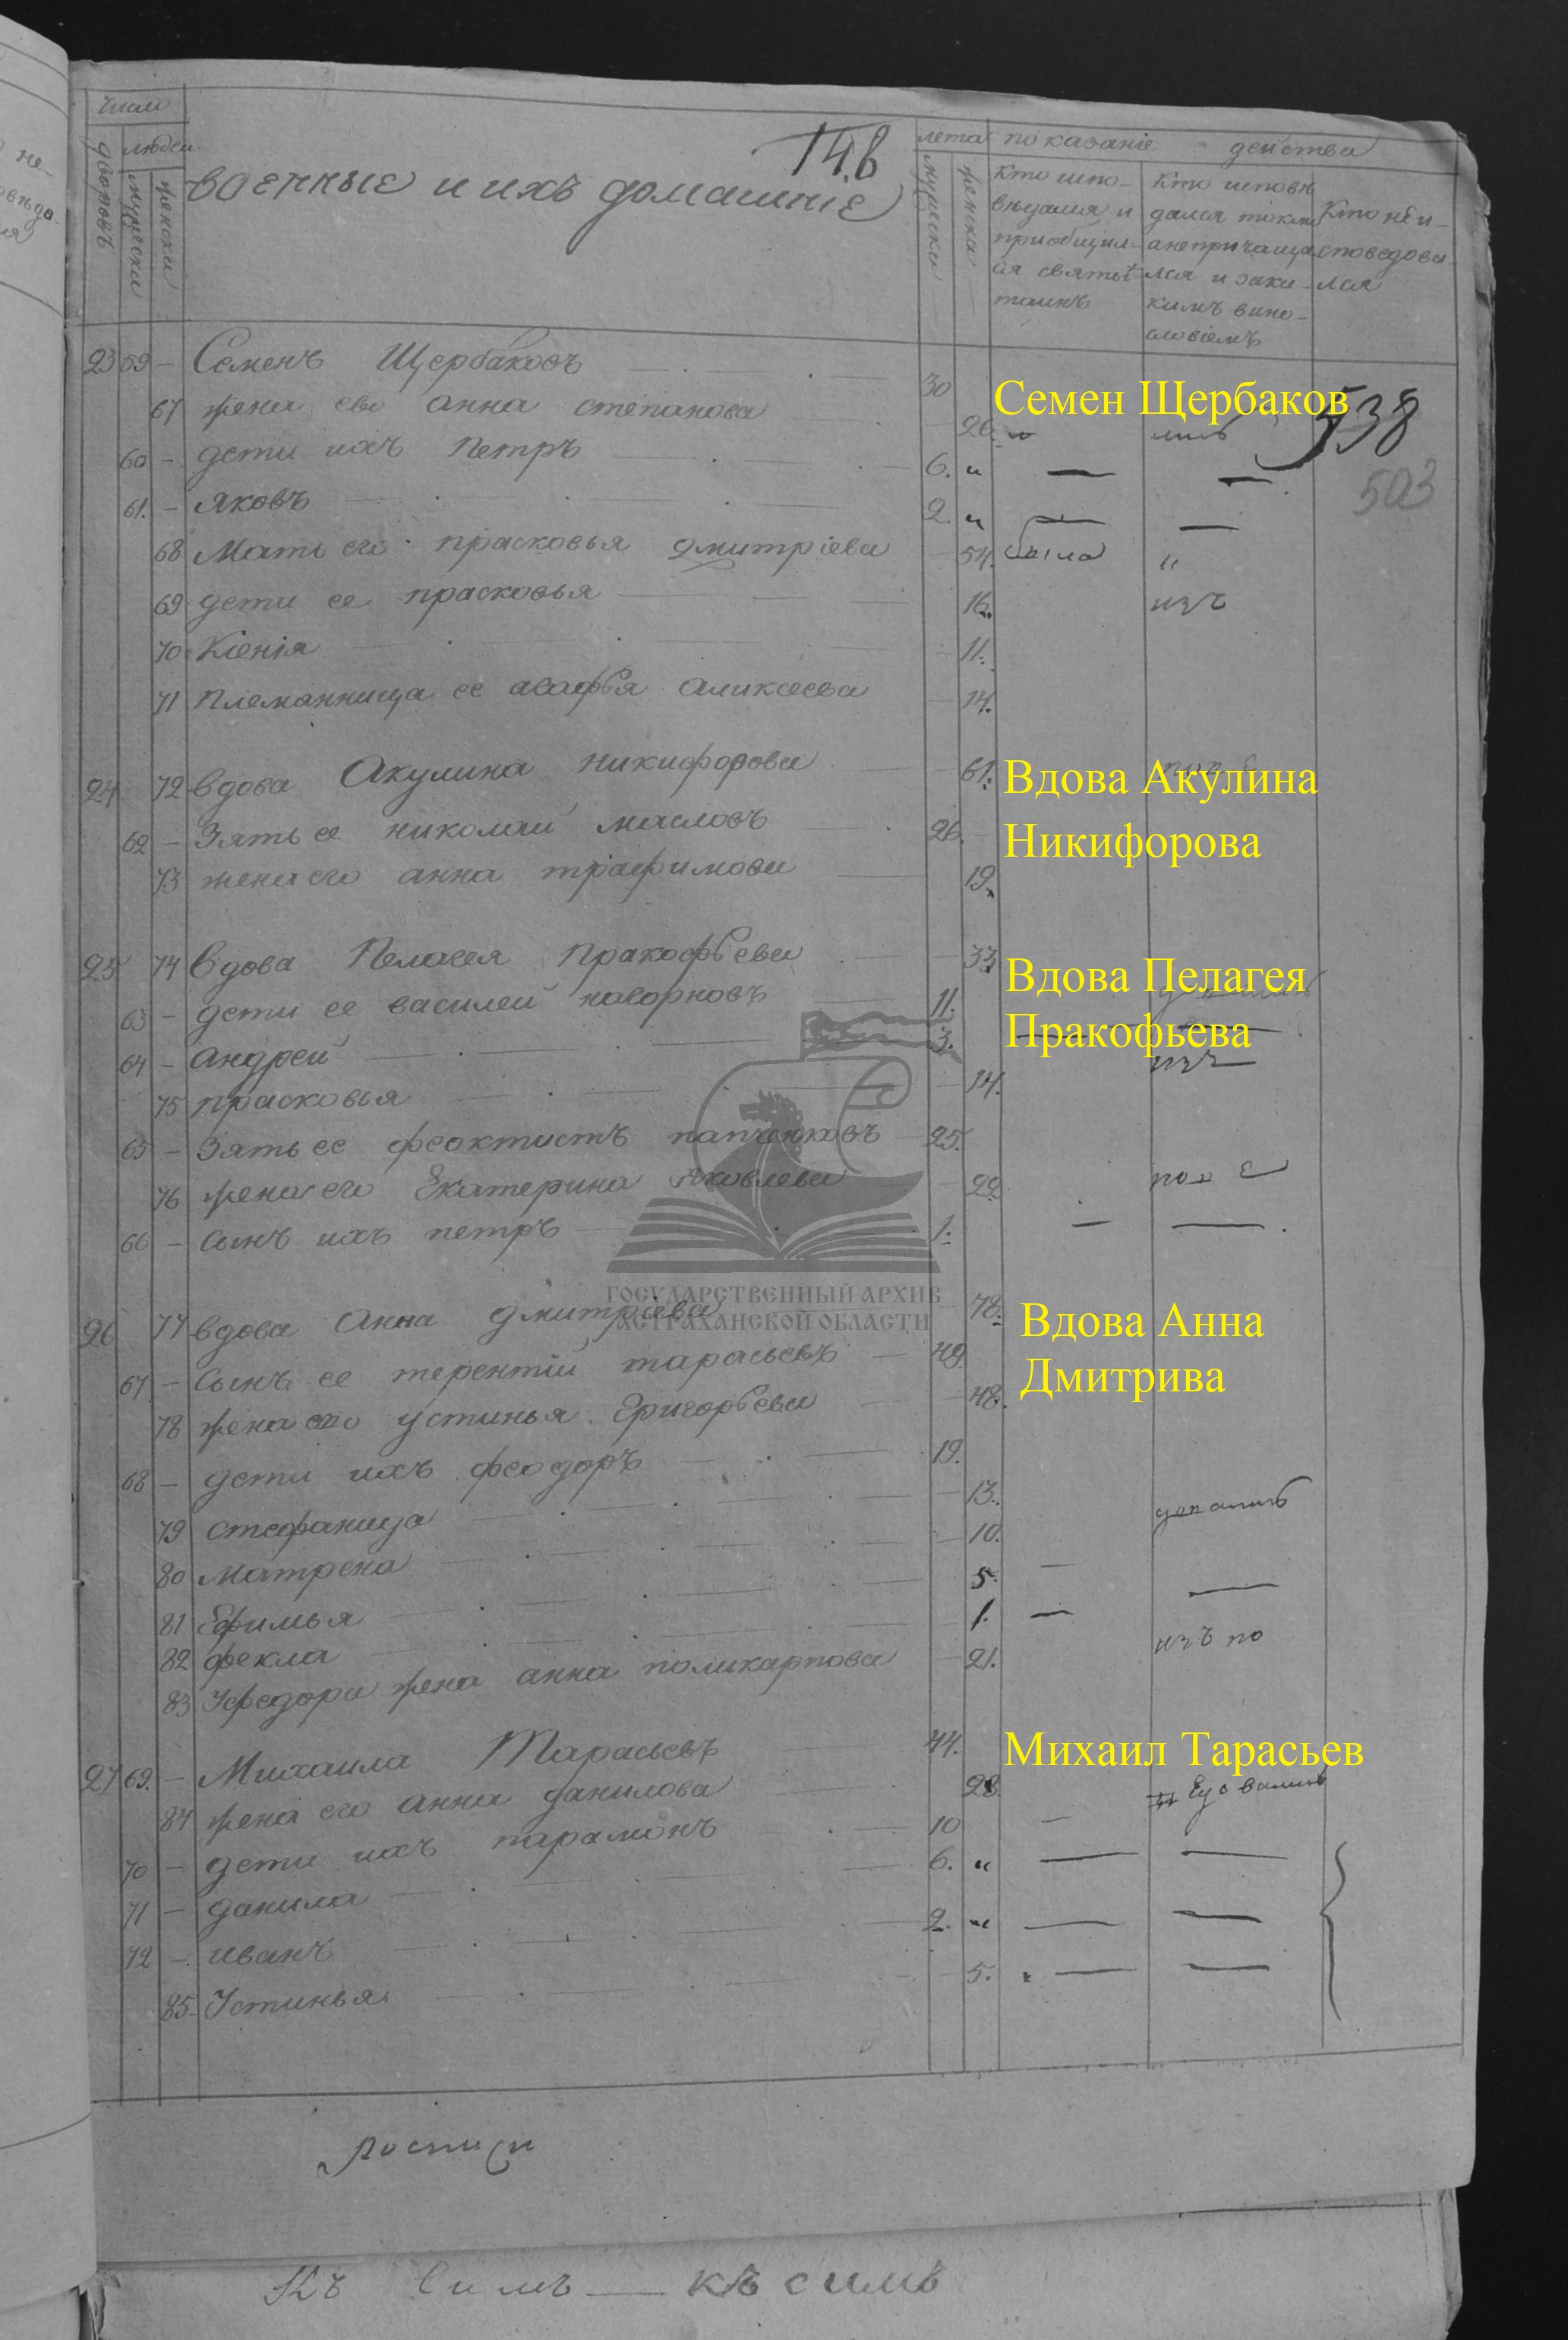 числ
дворовъ
людеи
мужески
женски
14.в
военные и ихъ домашніе
лета
мужески
женски
показаніе действа
Кто испо-
ведался и
приобщил-
ся святыхъ
таинъ
Кто исповѣ
дался токмо
а непричаща
лся и заки-
кимъ вино-
словіемъ
Кто не и-
споведова-
лся
23 59 - Семенъ Щербаковъ 30
Семен Щербаков
538
503
67 жена ево анна степанова 26
60 - дети ихъ Петръ 6.
61. - яковъ 2.
68 Мать его прасковья дмитріева 54. была
69 дети ее прасковья 16. изъ
70 Ксенія 11.
71 племянница ее агафья аликсеева 14.
24 72 вдова Акулина никифорова 61.
Вдова Акулина
Никифорова
62 - Зять ее николаи масловъ 26.
73 жена его анна трафимова 19.
25 74 вдова Пелагея Пракофьева 33
Вдова Пелагея
Пракофьева
63 - дети ее василеи 11.
64 - андреи 3.
75 прасковья 14. изъ
65 - Зять ее феоктистъ 25.
76 жена его Екатерина яковлева 22
66 - сынъ ихъ петръ 1.
ГОСУДАРСТВЕННЫЙ АРХИВ
АСТРАХАНСКОЙ ОБЛАСТИ
26 77 вдова Анна дмитріева 78.
Вдова Анна
Дмитрива
67 - Сынъ ее терентіи тарасьевъ 49
78 жена его устинья Григорьева 48.
68 - дети ихъ феодоръ 19.
79 стефанида 13.
80 матрена 10.
81 Ефимья 5.
82 фекла 1. изъ по
83 Уфедора жена анна поликарпова 21.
27 69. - Михаила Тарасьевъ 44.
Михаил Тарасьев
84 жена его анна данилова 28.
70 - дети ихъ парамонъ 10
71 - данила 6.
72 - иванъ 2.
85 Устинья 5.
росписи
Къ симъ — къ симъ